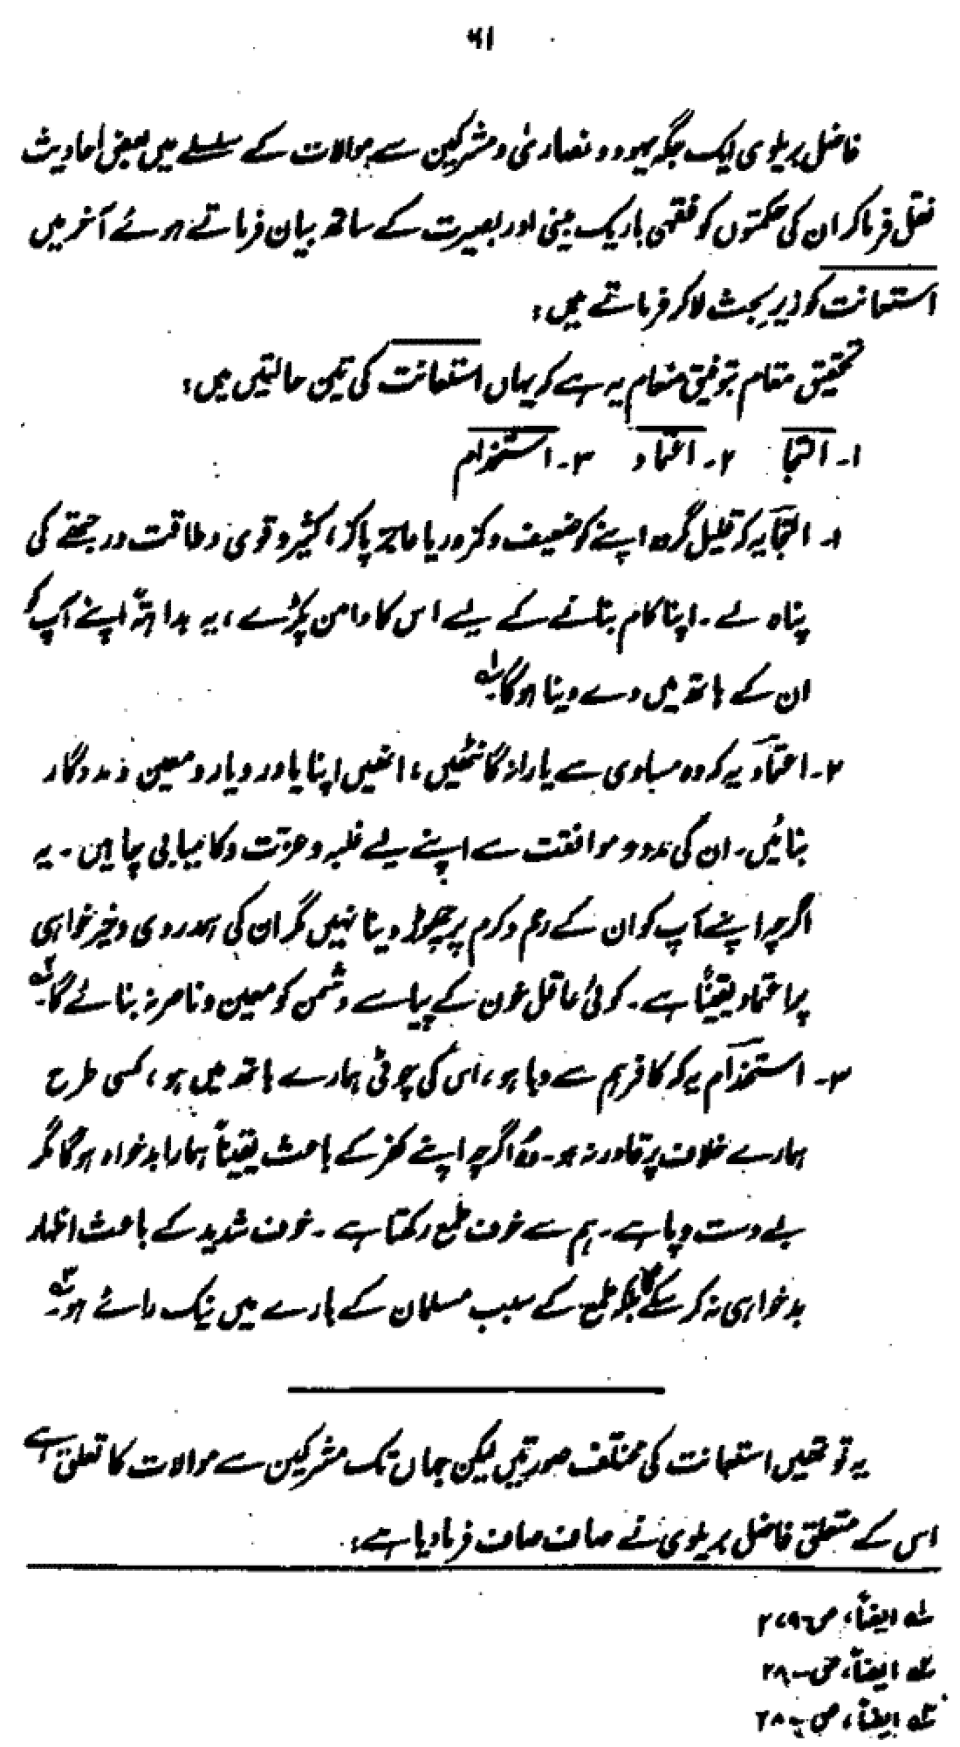 ۶۱
فاضل بریلوی ایک جگہ یہود و نصاریٰ و مشرکین سے موالات کے سلسلے میں بعض احادیث
نقل فرما کر ان کی حکمتوں کو فقہی باریک بینی اور بصیرت کے ساتھ بیان فرماتے ہوئے آخر میں
استعانت کو زیر بحث لا کر فرماتے ہیں:
تحقیق مقام بتوفیق منعام یہ ہے کہ یہاں استعانت کی تین حالتیں ہیں:
۱۔ التجا ۲۔ اعتماد ۳۔ استخدام
۱۔ التجا یہ کہ قلیل گروہ اپنے کو ضعیف و کمزور یا عاجز پا کر، کثیر و قوی و طاقت ور جتھے کی
پناہ لے۔ اپنا کام بنانے کے لیے اس کا دامن پکڑے، یہ بداہتہً اپنے آپ کو
ان کے ہاتھ میں دے دینا ہوگا۔ لہ
۲۔ اعتماد یہ کہ وہ مساوی سے یارانہ گانٹھیں، انھیں اپنا یاور و یار و معین و مددگار
بنائیں۔ ان کی مدد و موافقت سے اپنے لیے غلبہ و عزت و کامیابی چاہیں۔ یہ
اگرچہ اپنے آپ کو ان کے رحم و کرم پر چھوڑ دینا نہیں مگر ان کی ہمدردی و خیر خواہی
پر اعتماد یقیناً ہے۔ کوئی عاقل خون کے پیاسے دشمن کو معین و ناصر نہ بنائے گا۔ ۲ہ
۳۔ استخدام یہ کہ کافر ہم سے دبا ہو، اس کی چوٹی ہمارے ہاتھ میں ہو، کسی طرح
ہمارے خلاف پر قادر نہ ہو۔ وہ اگرچہ اپنے کفر کے باعث یقیناً ہمارا بدخواہ ہوگا مگر
بے دست و پا ہے۔ ہم سے خوف طمع رکھتا ہے۔ خوف شدید کے باعث اظہار
بدخواہی نہ کر سکے گا بلکہ طمع کے سبب مسلمان کے بارے میں نیک رائے ہو۔ ۳ہ
یہ تو تھیں استعانت کی مختلف صورتیں لیکن جہاں تک مشرکین سے موالات کا تعلق ہے
اس کے متعلق فاضل بریلوی نے صاف صاف فرما دیا ہے:
لہ ایضاً، ص ۲۷۹
۲ہ ایضاً، ص ۲۸۰
۳ہ ایضاً، ص ۲۸۰